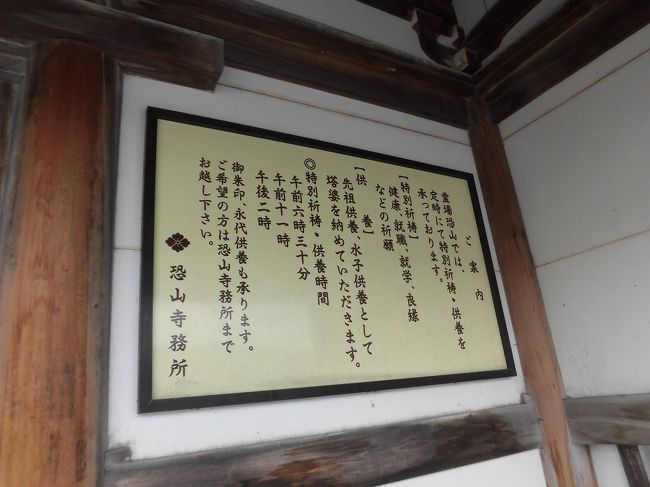 ご案内
霊場恐山では、
定時にて特別祈祷・供養を
承っております。
【特別祈祷】
健康、就職、就学、良縁
などの祈願
【供養】
先祖供養、水子供養として
塔婆を納めていただきます。
◎特別祈祷・供養時間
午前六時三十分
午前十一時
午後二時
御朱印、永代供養も承ります。
ご希望の方は恐山寺務所まで
お越し下さい。
恐山寺務所